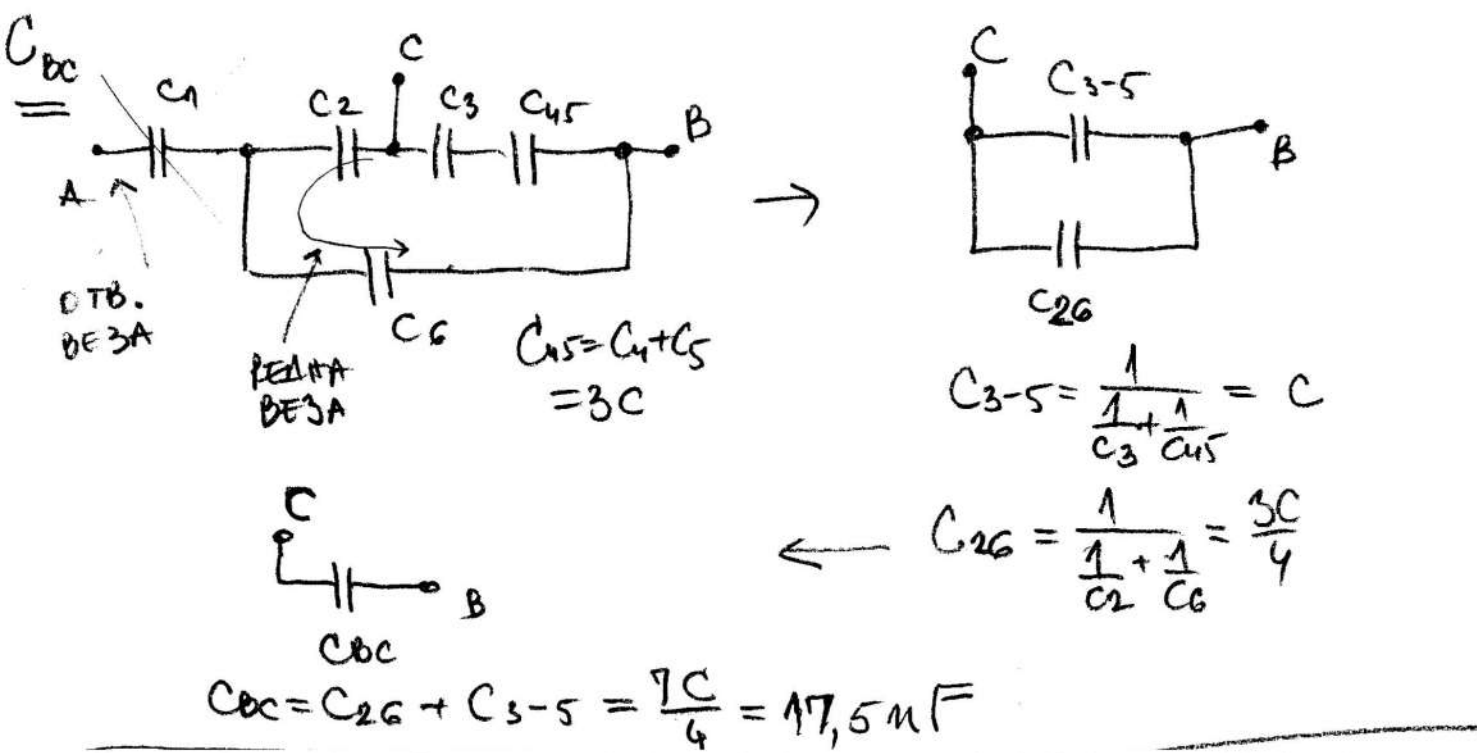 C_BC
C1 C2 C C3 C45 B
A
ОТВ.
ВЕЗА
РЕДНА
ВЕЗА
C6
C45 = C4 + C5
= 3C
→
C C3-5 B
C26
C3-5 = 1/(1/C3 + 1/C45) = C
← C26 = 1/(1/C2 + 1/C6) = 3C/4
C B
CBC
CBC = C26 + C3-5 = 7C/4 = 17,5 nF